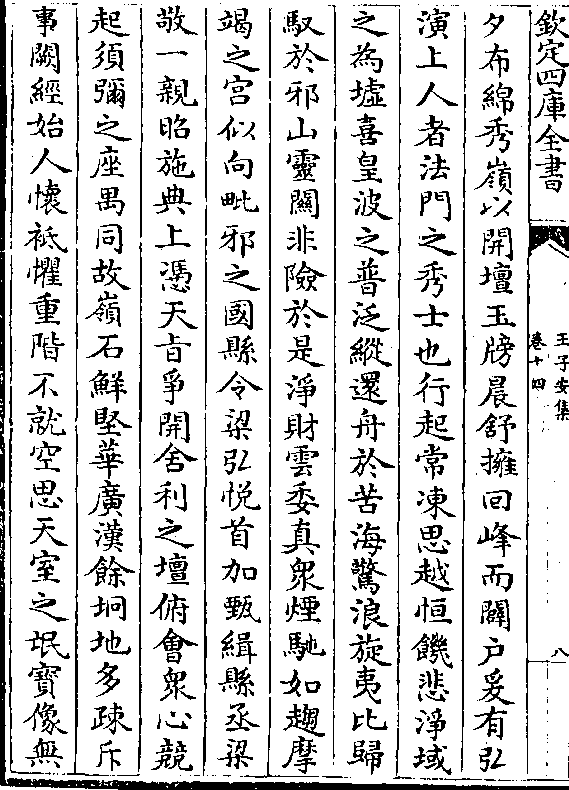 欽定四庫全書
王子安集
卷十四
八
夕布綿秀嶺以開壇玉牓晨舒擁回峰而闢户爰有弘
演上人者法門之秀士也行起常凍思越恒饑悲淨域
之為墟喜皇波之普泛縱還舟於苦海驚浪旋夷比歸
馭於邪山靈闗非險於是淨財雲委真衆煙馳如趨摩
竭之宫似向毗邪之國縣令梁弘悅首加甄緝縣丞梁
敬一親昭施典上憑天㫖爭開舍利之壇俯會衆心競
起須彌之座禺同故嶺石鮮堅華廣漢餘坰地多疎斥
事闕經始人懷祗懼重階不就空思天室之氓寳像無